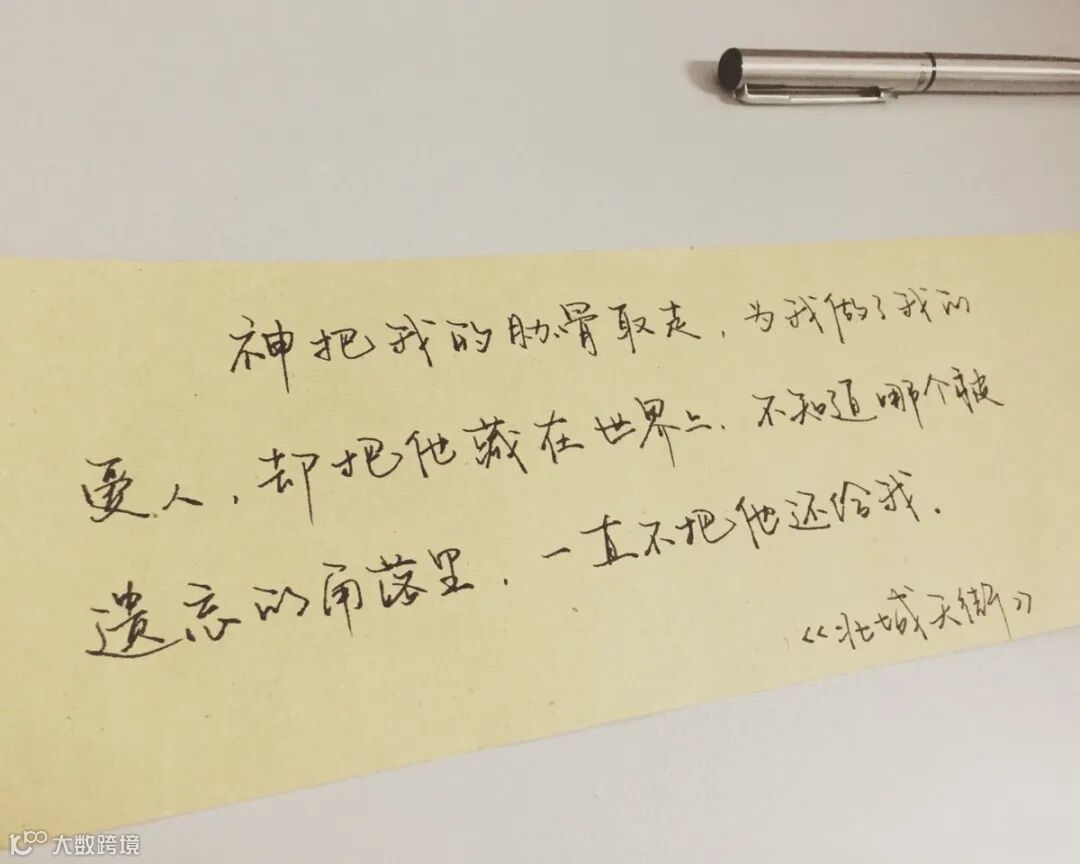 神把我的肋骨取走，为我做了我的
爱人，却把他藏在世界上、不知道哪个被
遗忘的角落里，一直不把他还给我．
《北城天街》
大数跨境